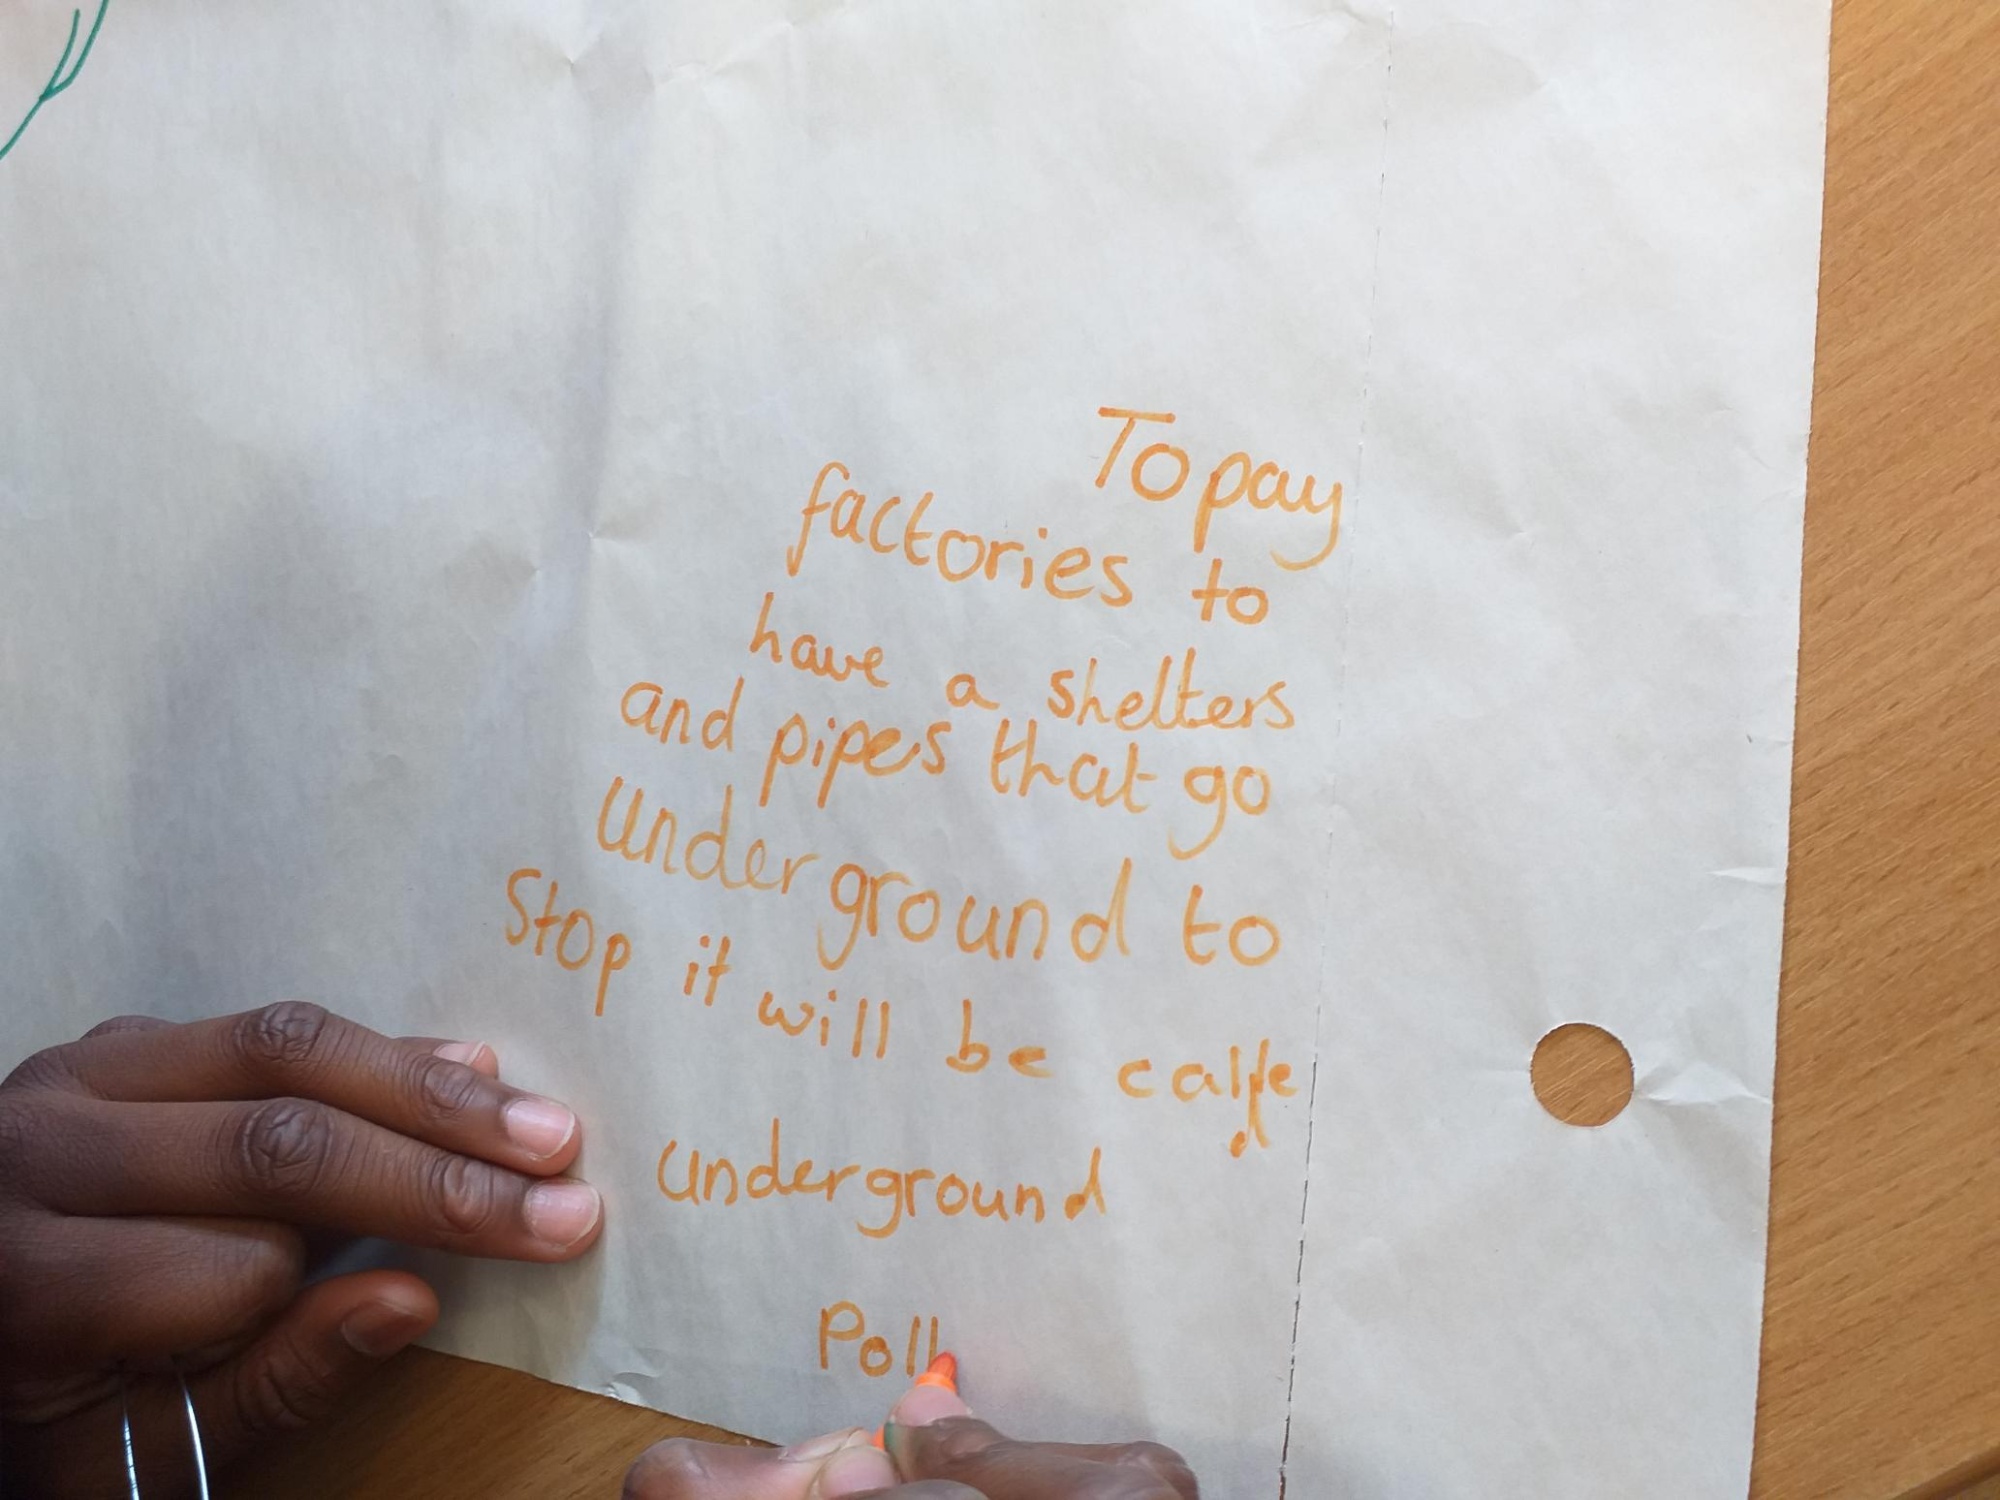 To pay
factories to
have a shelters
and pipes that go
underground to
Stop it will be calle
d
underground
Poll